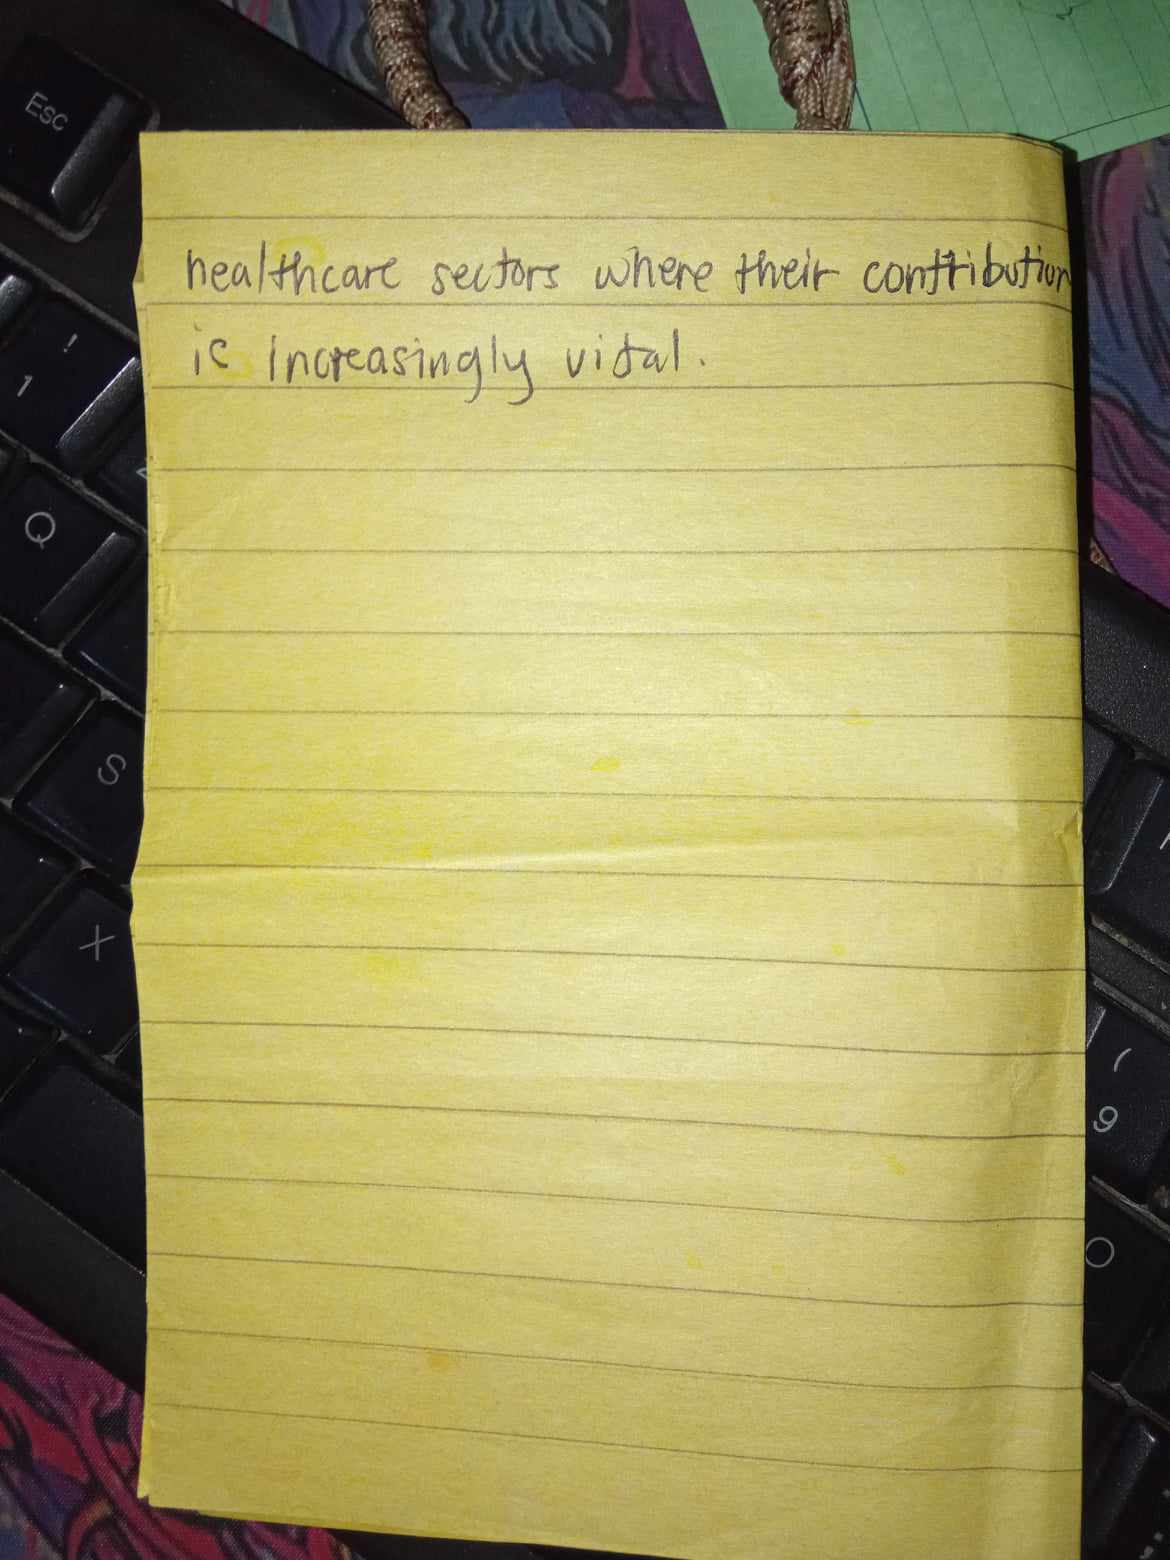 healthcare sectors where their contribution
is increasingly vital.
Esc
!
1
Q
S
X
(
9
O